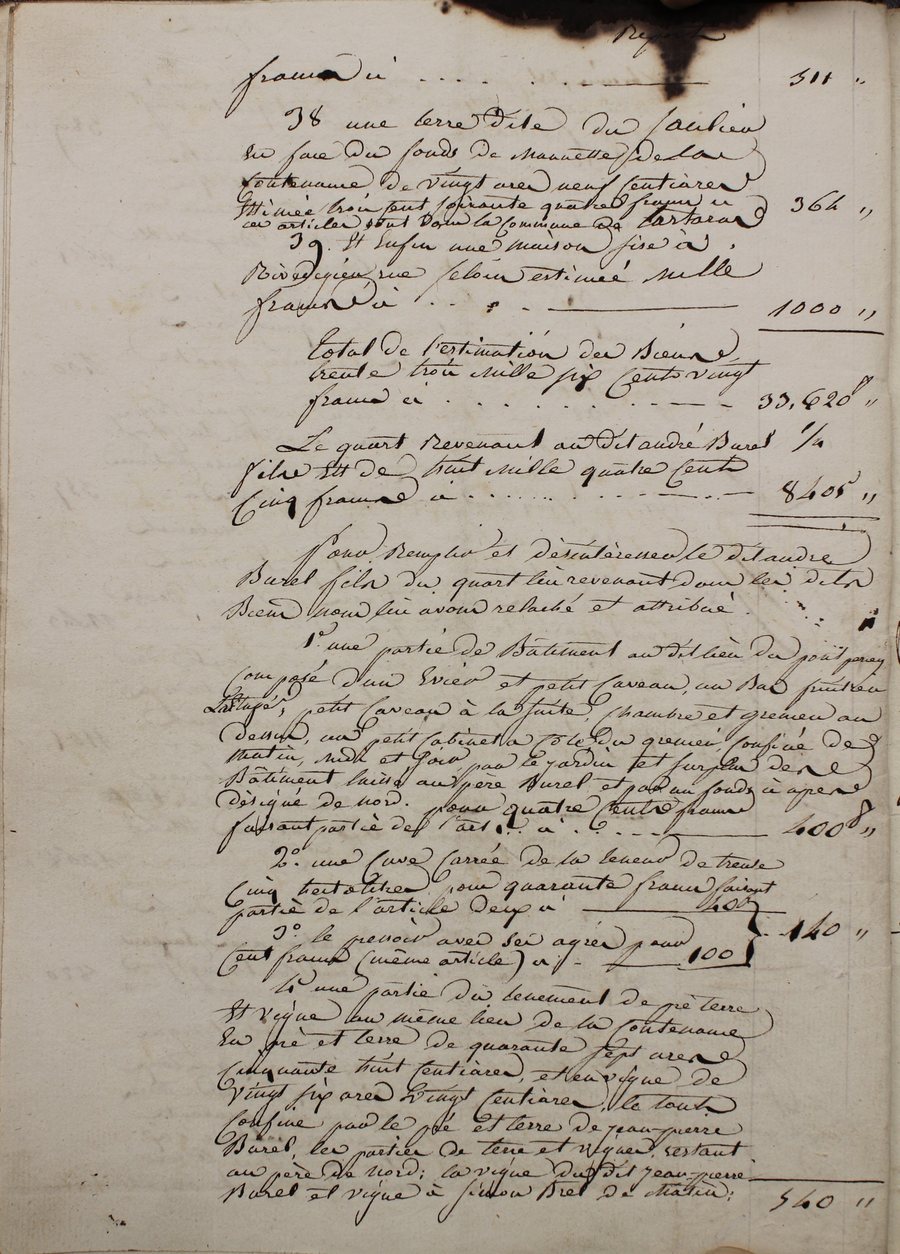 Report
francs ci . . . . . . . 511 "
38 une terre dite du
en face du fonds de Mannette de la
contenance de vingt ares neuf centiares
Estimée trois cent soixante quatre francs ci 364 "
ces articles sont dans la Commune de tartaras
39. Et Enfin une maison sise à
Rivedegier rue estimée Mille
francs ci . . . . 1000 "
total de l'estimation des Biens
trente trois Mille six Cents vingt
francs ci . . . . . . . . 33,620 "
Le quart Revenant au dit andré Burel 1/4
fils Est de huit Mille quatre Cent
Cinq francs ci . . . . . . . . 8405 "
Pour Remplir et désintéresser le dit andré
Burel fils du quart lui revenant dans les dits
Biens nous lui avons relaché et attribué
1° une partie de Bâtiment au dit lieu du
Composé d'un Evier et petit Caveau, un Bas
L'astuge, petit Caveau à la suite, Chambre et grenier au
dessus, un petit Cabinet à côté du grenier, Confiné de
Matin, midi et soir par le jardin et surplus de
Bâtiment laissé au père Burel et par un fonds ci après
désigné de nord. pour quatre Cents francs
faisant partie de l'art . . . ci . . . 400 "
2° une Cuve Carrée de la teneur de trente
Cinq hectolitres pour quarante francs faisant
partie de l'article deux ci 40
3° le pressoir avec ses agrès pour 140 "
Cent francs (même article) ci 100
4° une partie du tenement de pré terre
Et vigne au même lieu de la Contenance
En pré et terre de quarante sept ares
Cinquante huit Centiares, et en vigne de
vingt six ares vingt Centiares, le tout
Confine par le pré et terre de jean-pierre
Burel, les parties de terre et vignes restant
au père de nord; la vigne du dit jean-pierre
Burel et vigne à Simon Bret de Matin;
540 "